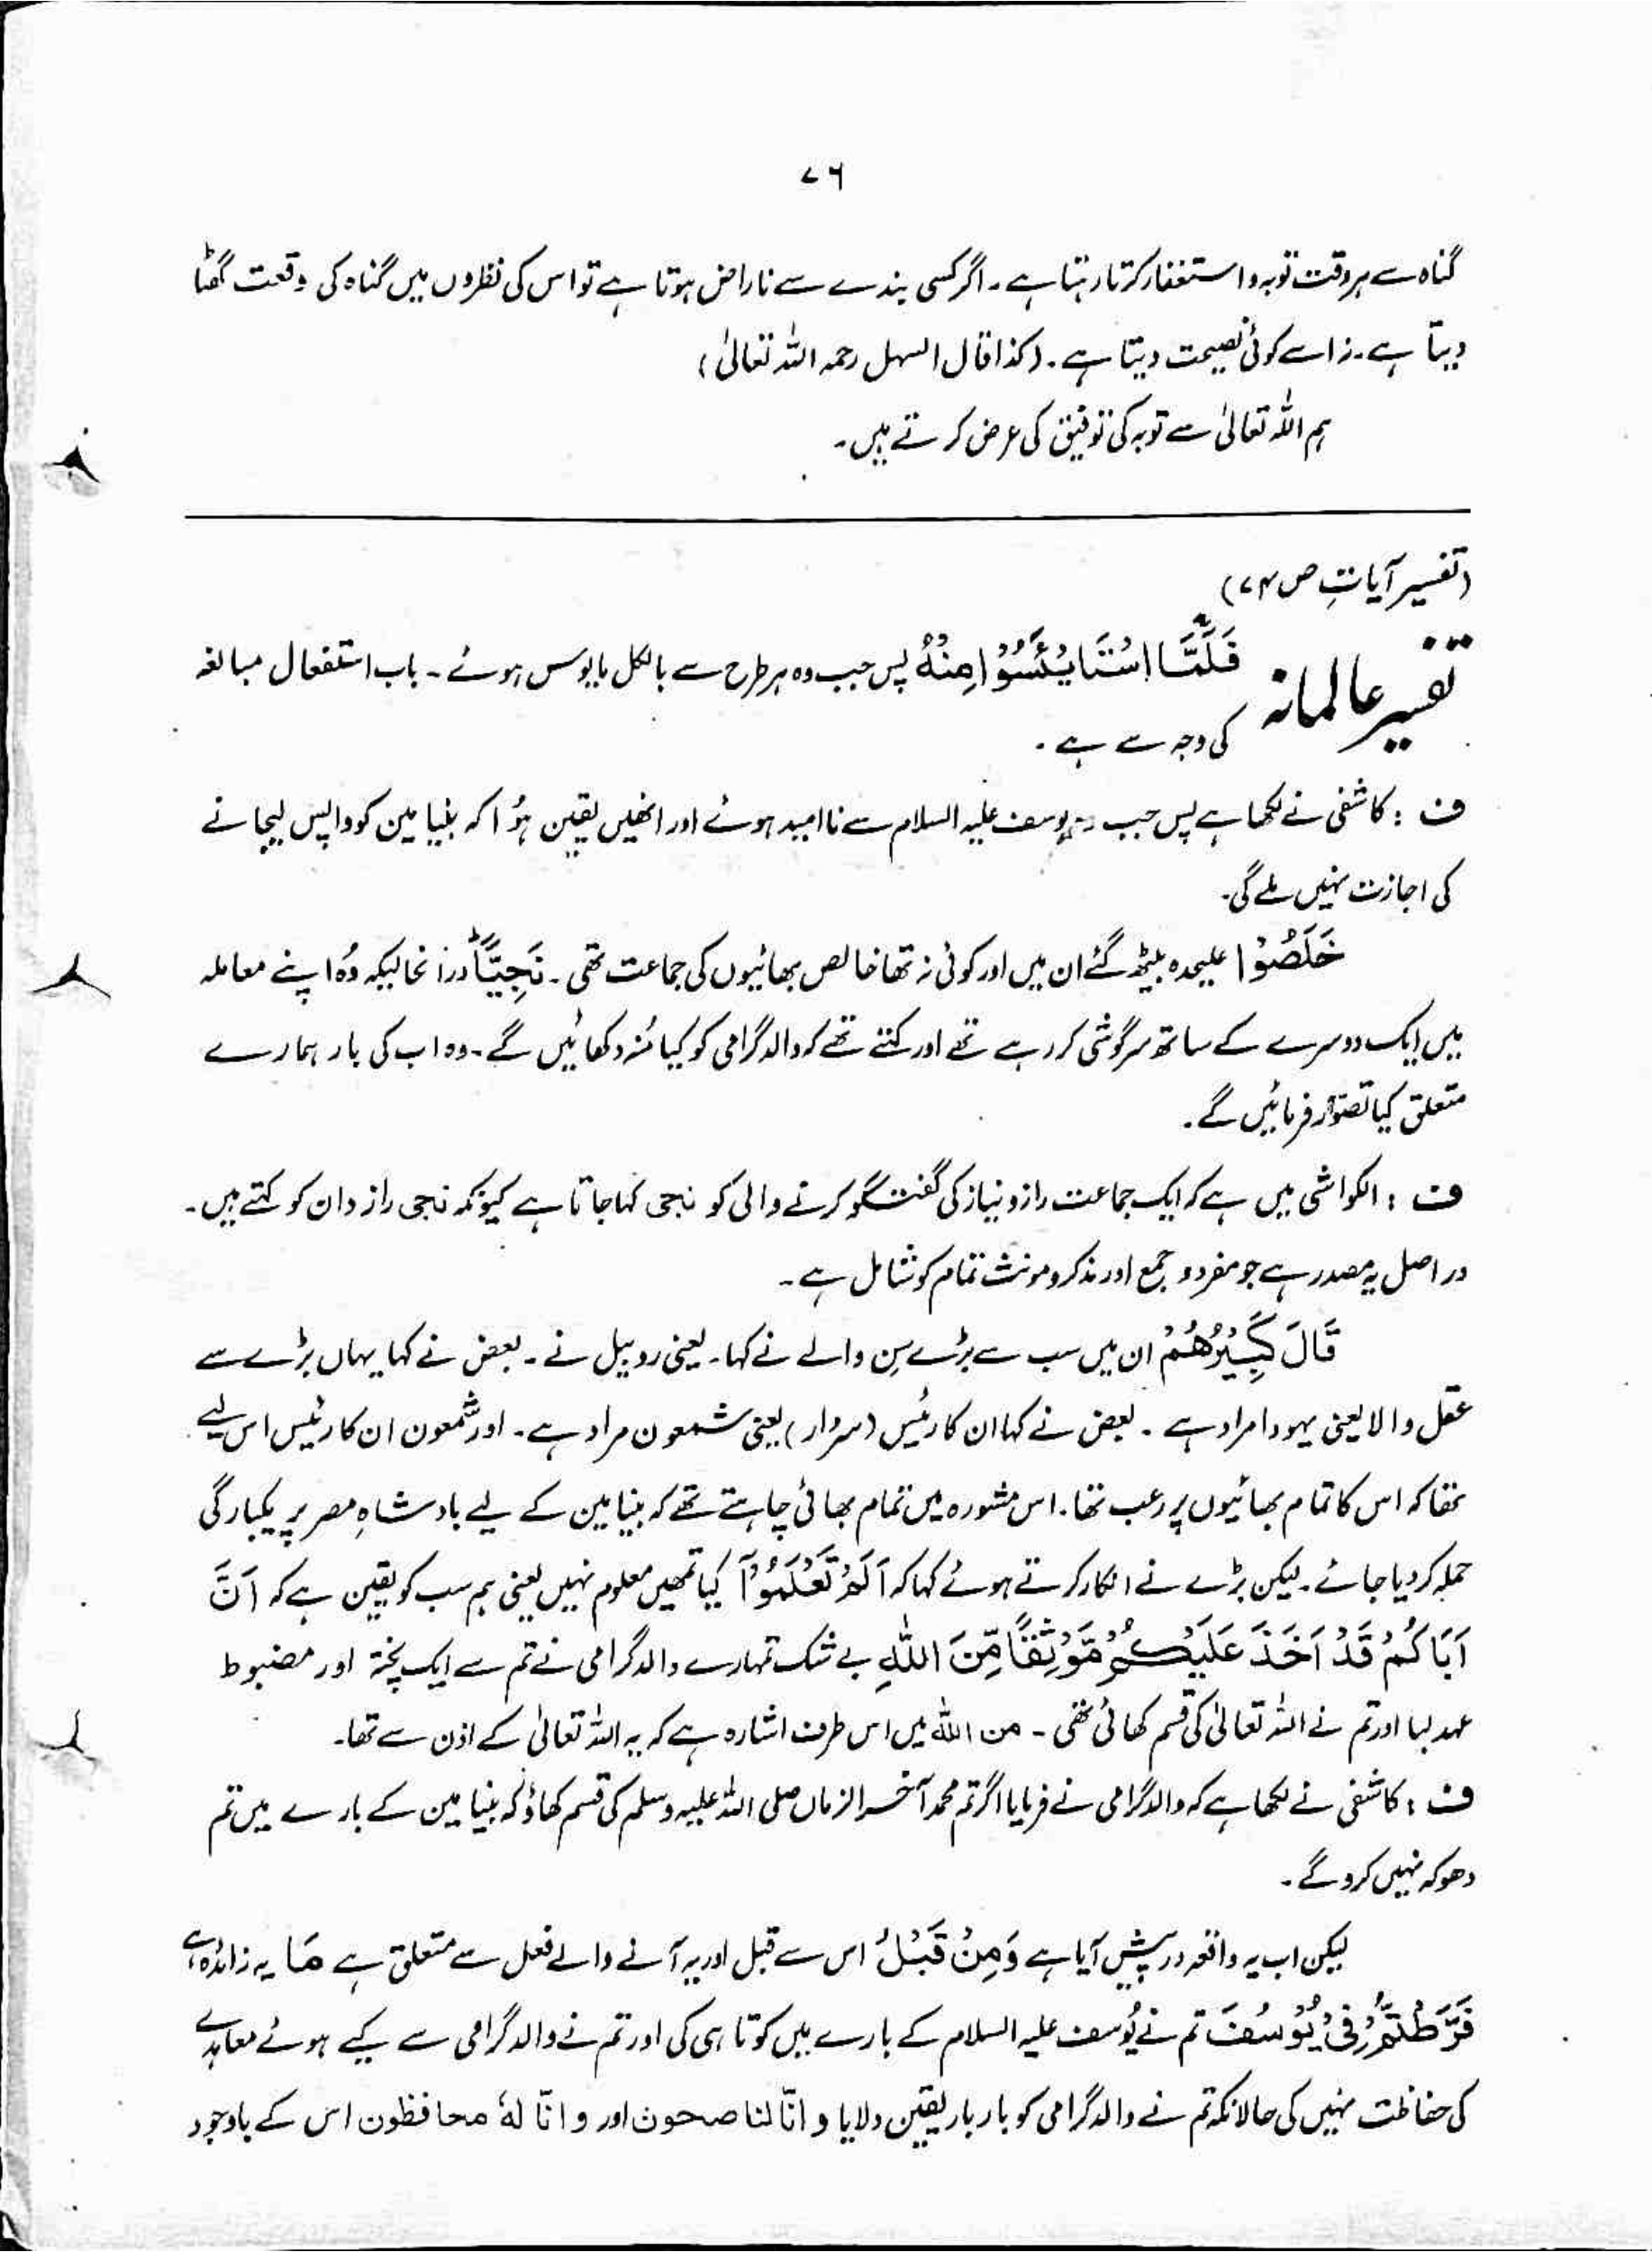 ۷۶
گناہ سے ہر وقت توبہ و استغفار کرتا رہتا ہے۔ اگر کسی بندے سے ناراض ہوتا ہے تو اس کی نظروں میں گناہ کی وقعت گھٹا
دیتا ہے۔ نہ اسے کوئی نصیحت دیتا ہے۔ (کذا قال السہل رحمہ اللہ تعالیٰ)
ہم اللہ تعالیٰ سے توبہ کی توفیق کی عرض کرتے ہیں۔
(تفسیر آیاتِ ص ۷۴)
تفسیر عالمانہ فَلَمَّا اسْتَايْئَسُوْا مِنْهُ پس جب وہ ہر طرح سے بالکل مایوس ہوئے۔ باب استفعال مبالغہ
کی وجہ سے ہے۔
ف : کاشفی نے لکھا ہے پس جب یوسف علیہ السلام سے ناامید ہوئے اور انھیں یقین ہُوا کہ بنیامین کو واپس لیجانے
کی اجازت نہیں ملے گی۔
خَلَصُوْا علیحدہ بیٹھ گئے ان میں اور کوئی نہ تھا خالص بھائیوں کی جماعت تھی۔ نَجِيًّا ط درانحالیکہ وُہ اپنے معاملہ
میں ایک دوسرے کے ساتھ سرگوشی کر رہے تھے اور کہتے تھے کہ والد گرامی کو کیا منہ دکھائیں گے۔ وہ اب کی بار ہمارے
متعلق کیا تصوّر فرمائیں گے۔
ف : الکواشی میں ہے کہ ایک جماعت راز و نیاز کی گفتگو کرنے والی کو نجی کہا جاتا ہے کیونکہ نجی رازدان کو کہتے ہیں۔
در اصل یہ مصدر ہے جو مفرد و جمع اور مذکر و مونث تمام کو شامل ہے۔
قَالَ كَبِيْرُهُمْ ان میں سب سے بڑے سِن والے نے کہا۔ یعنی روبیل نے۔ بعض نے کہا یہاں بڑے سے
عقل والا یعنی یہودا مراد ہے۔ بعض نے کہا ان کا رئیس (سردار) یعنی شمعون مراد ہے۔ اور شمعون ان کا رئیس اس لیے
تھا کہ اس کا تمام بھائیوں پر رعب تھا۔ اس مشورہ میں تمام بھائی چاہتے تھے کہ بنیامین کے لیے بادشاہِ مصر پر یکبارگی
حملہ کر دیا جائے۔ لیکن بڑے نے انکار کرتے ہوئے کہا کہ اَلَمْ تَعْلَمُوْٓا کیا تمھیں معلوم نہیں یعنی ہم سب کو یقین ہے کہ اَنَّ
اَبَاكُمْ قَدْ اَخَذَ عَلَيْكُمْ مَّوْثِقًا مِّنَ اللّٰهِ بے شک تمہارے والد گرامی نے تم سے ایک پختہ اور مضبوط
عہد لیا اور تم نے اللہ تعالیٰ کی قسم کھائی تھی۔ من اللہ میں اس طرف اشارہ ہے کہ یہ اللہ تعالیٰ کے اذن سے تھا۔
ف : کاشفی نے لکھا ہے کہ والد گرامی نے فرمایا اگر تم محمد آخر الزمان صلی اللہ علیہ وسلم کی قسم کھاؤ کہ بنیامین کے بارے میں تم
دھوکہ نہیں کرو گے۔
لیکن اب یہ واقعہ درپیش آیا ہے وَمِنْ قَبْلُ اس سے قبل اور یہ آنے والے فعل سے متعلق ہے مَا یہ زائدہ ہے
فَرَّطْتُّمْ فِيْ يُوْسُفَ تم نے یُوسف علیہ السلام کے بارے میں کوتاہی کی اور تم نے والد گرامی سے کیے ہوئے معاہدے
کی حفاظت نہیں کی حالانکہ تم نے والد گرامی کو بار بار یقین دلایا و انّا لنا صحون اور و انّا لہٗ محافظون اس کے باوجود